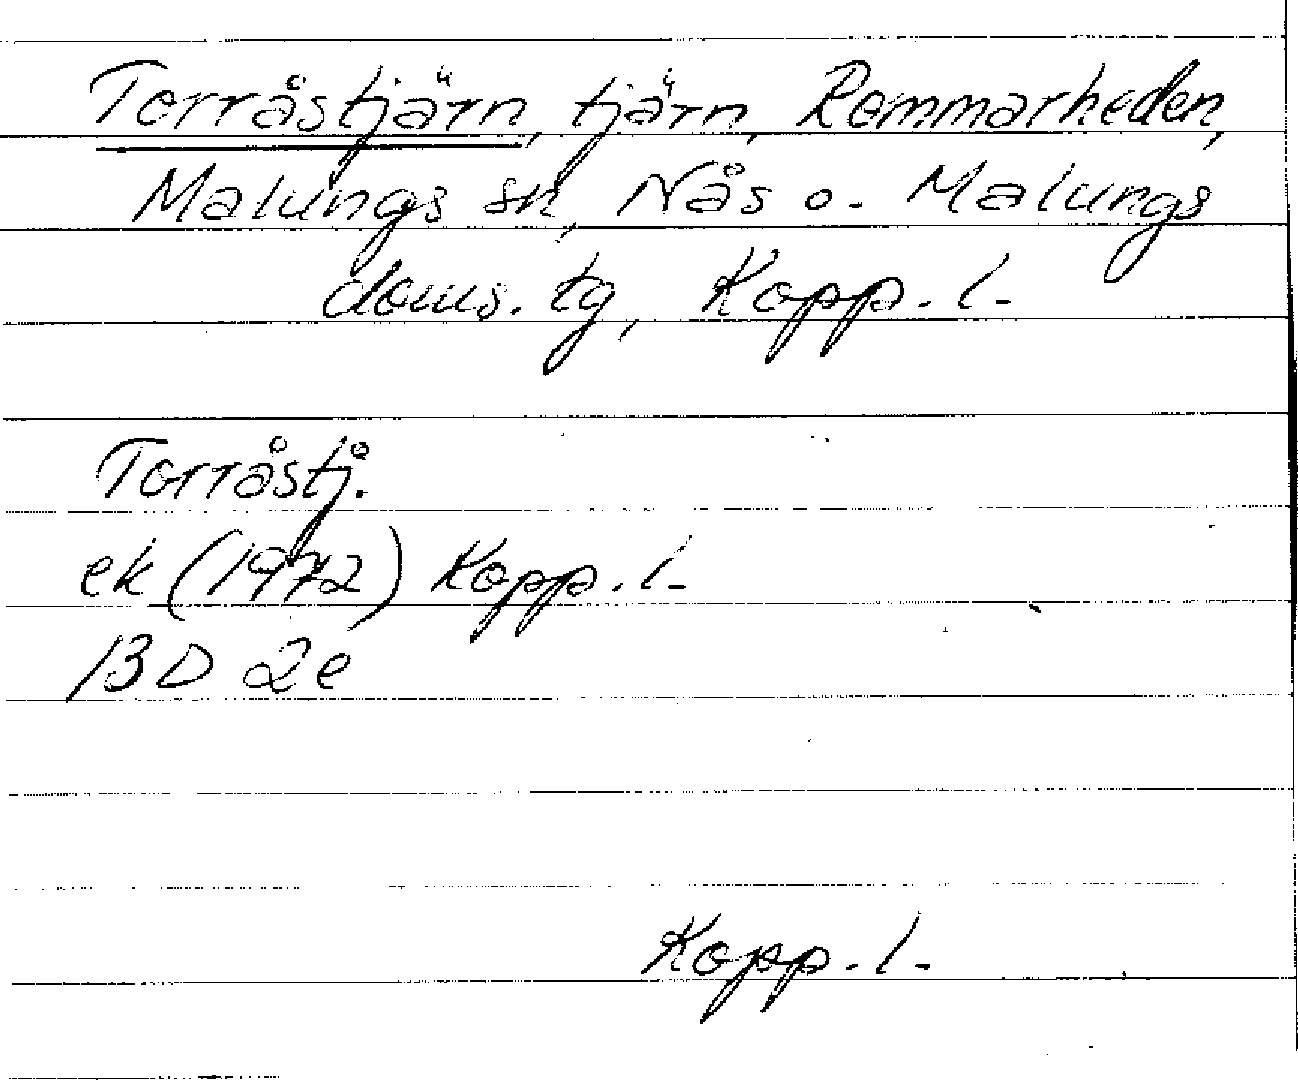 Torråstjärn, tjärn, Rommarheden,
Malungs sn, Nås o. Malungs
doms. tg, Kopp. l.
Torråstj.
ek (1972) Kopp. l.
13 D 2e
Kopp. l.